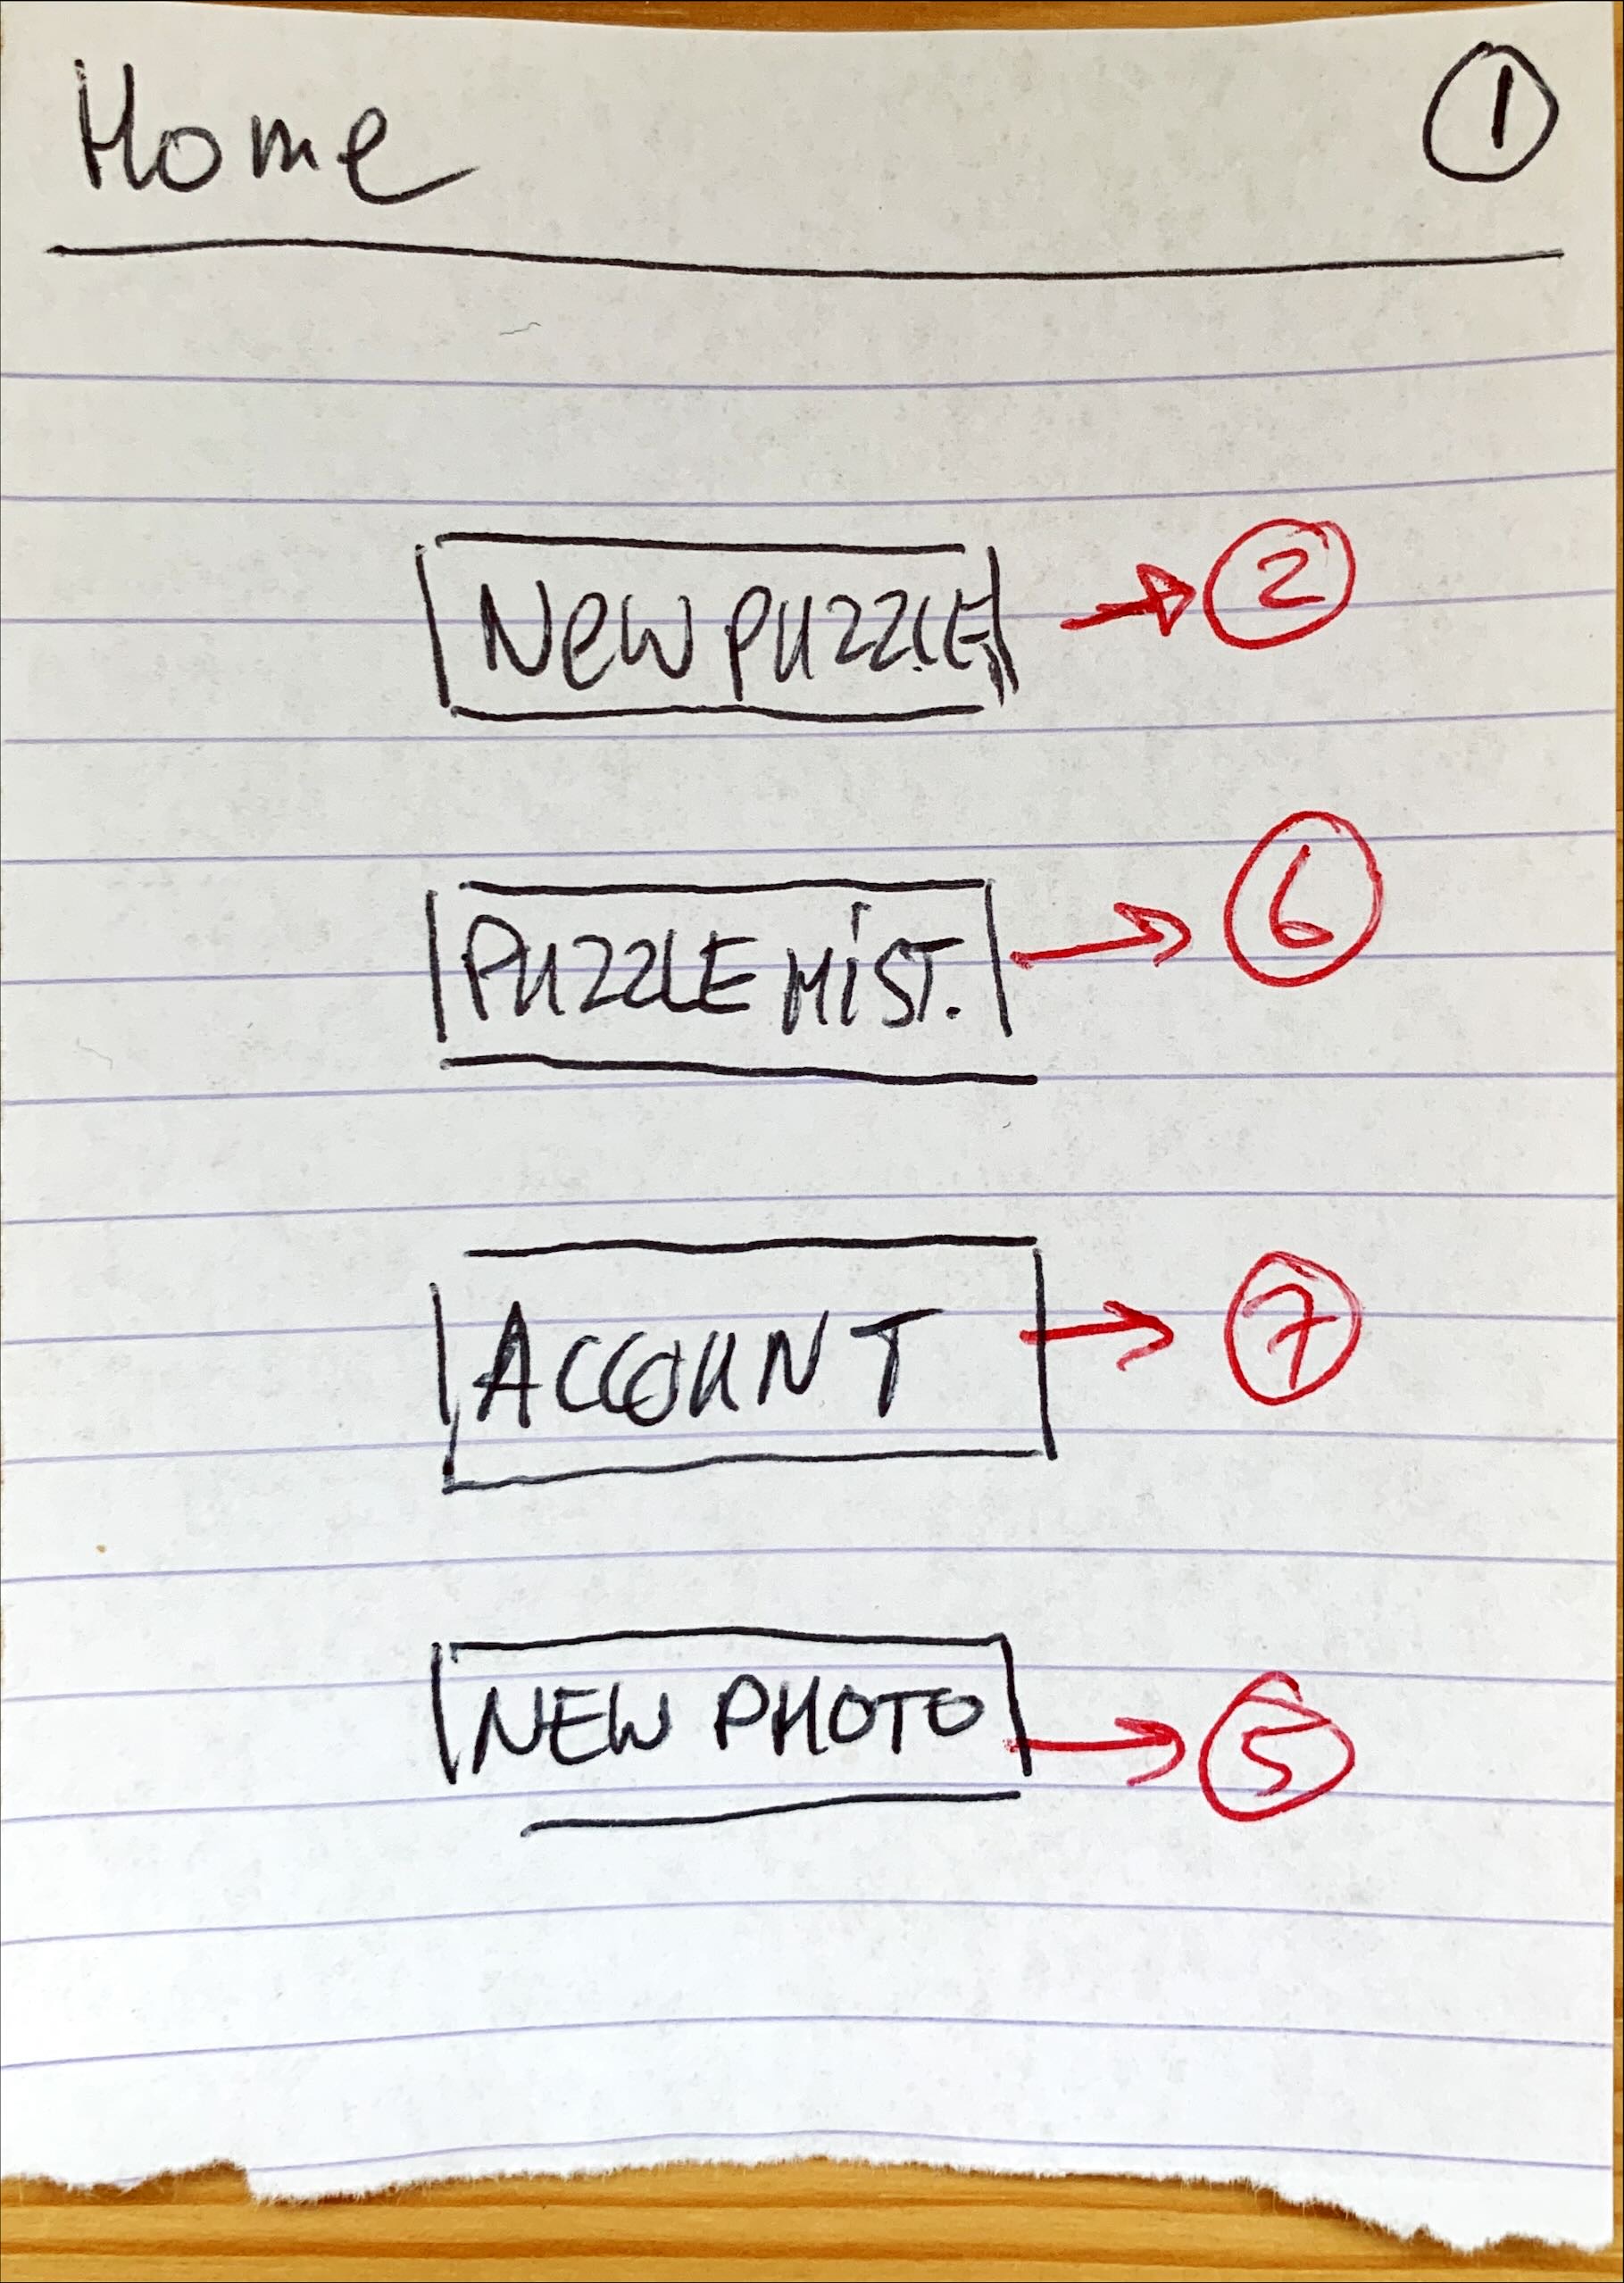 Home 1
New PUZZLE → 2
PUZZLE HiST. → 6
ACCOUNT → 7
NEW PHOTO → 5